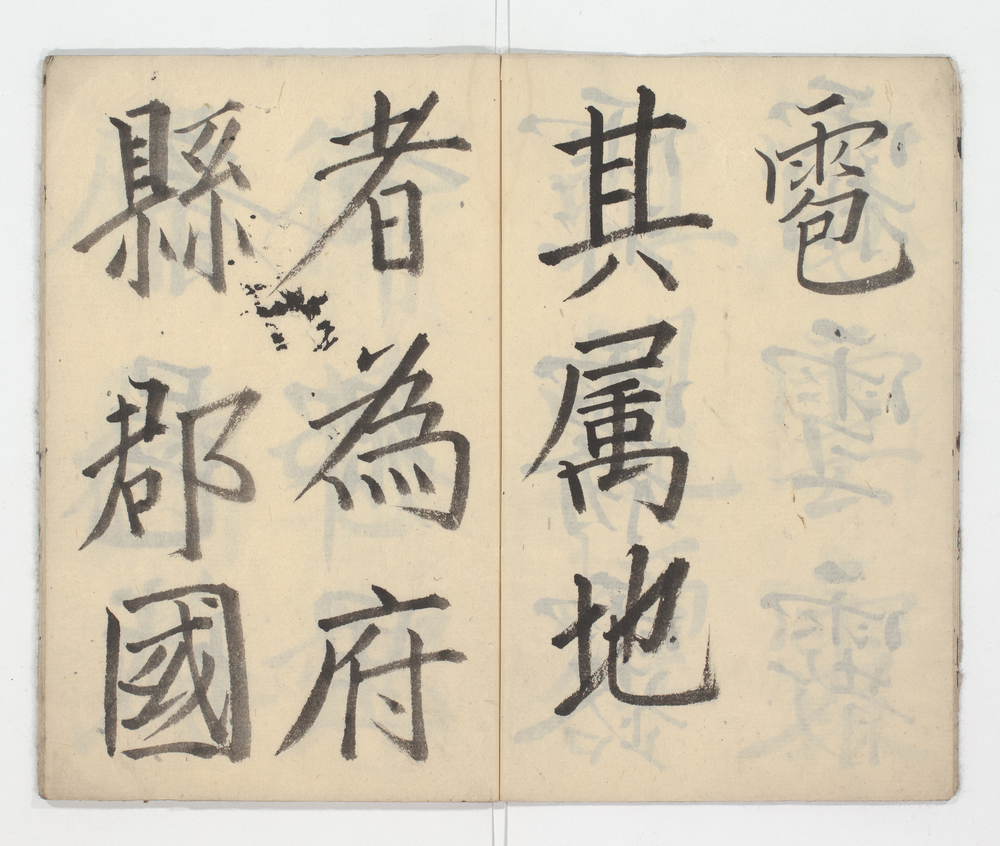 雹
其属地
者為府
縣郡國